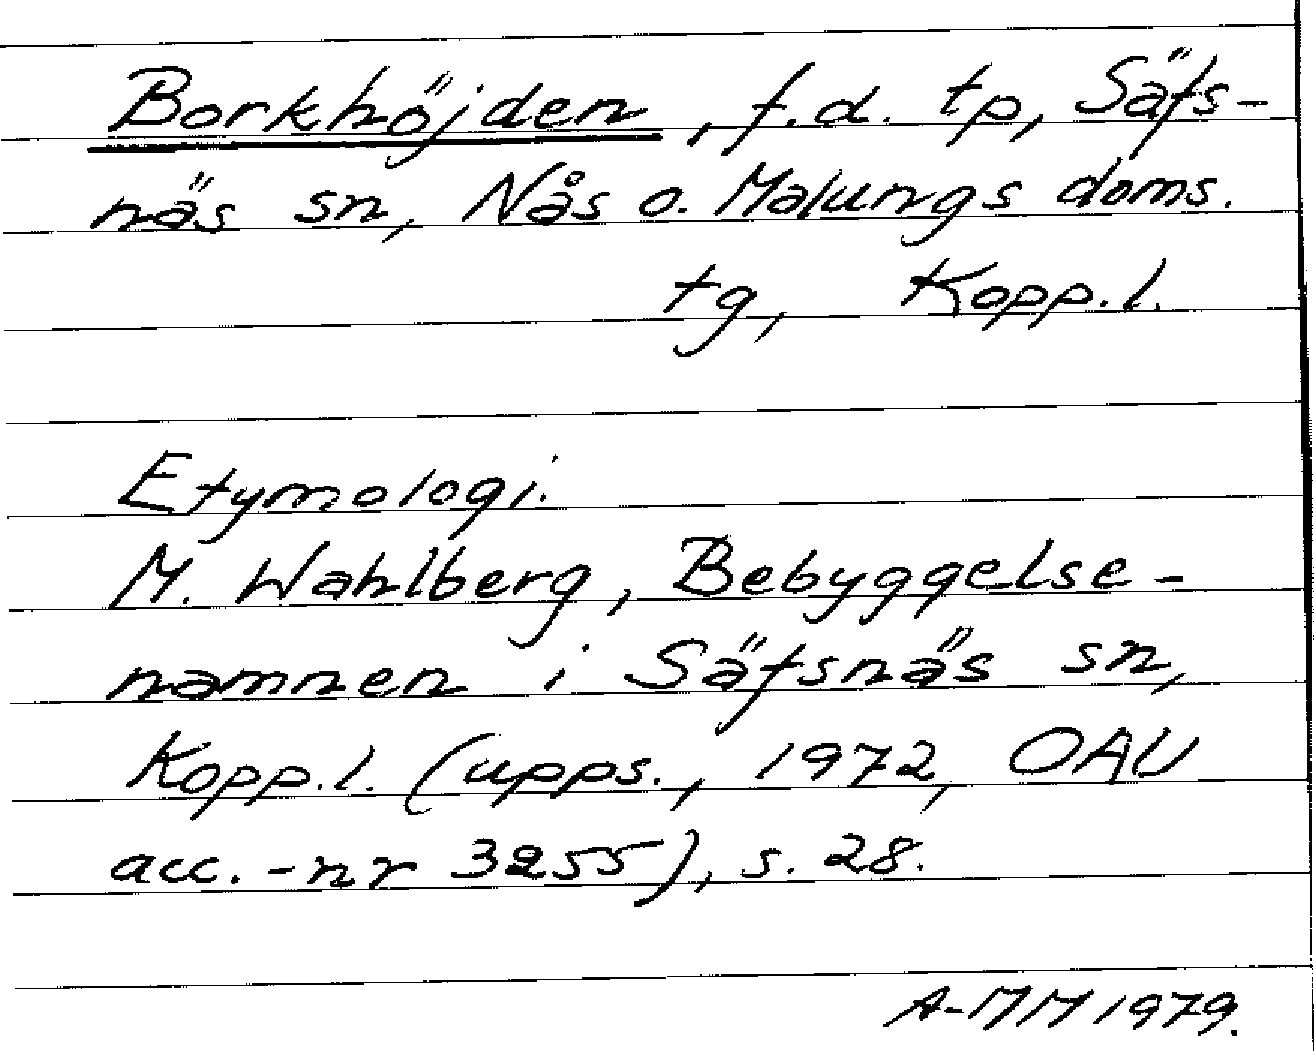 Borkhöjden, f.d. tp, Säfs-
näs sn, Nås o. Malungs doms.
tg, Kopp.l.
Etymologi.
M. Wahlberg, Bebyggelse-
namnen i Säfsnäs sn,
Kopp.l. (upps., 1972, OAU
acc.-nr 3255), s. 28.
A-MM 1979.